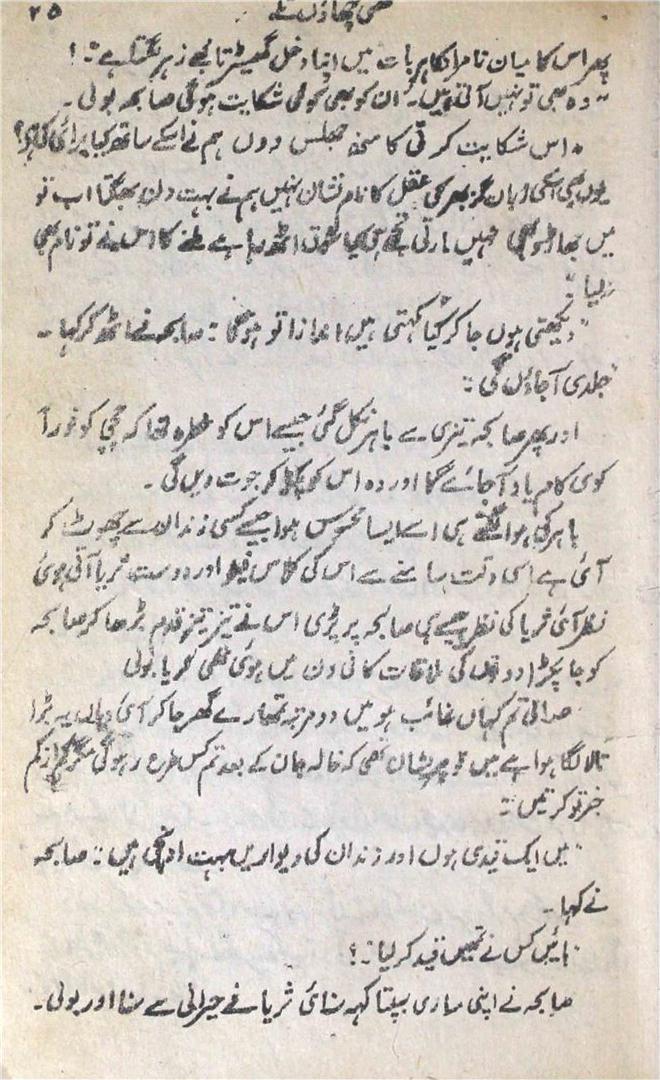 چھاؤں تلے ۲۵
پھر اس کا میان نامراد کا ہر بات میں اپنا دخل گھسیڑنا مجھے زہر لگتا ہے۔ !
"وہ بھی تو نہیں آتی ہیں۔ ان کو بھی کوئی شکایت ہو گی صابحہ بولی۔
اس شکایت کرتی کا منہ جھلس دوں ہم نے اسکے ساتھ کیا برائی کی ہے؟
یوں بھی اسکی زبان گز بھر کی عقل کا نام نشان نہیں ہم نے بہت دن بھگتا اب تو
میں جھاڑو بھی نہیں مارتی تجھے ہی کیا شوق اٹھ رہا ہے ملنے کا اس نے تو نام بھی
نہ لیا"
"دیکھتی ہوں جا کر کیا کہتی ہیں اندازا تو ہوگا"۔ صابحہ نے اٹھ کر کہا۔
"جلدی آجاؤں گی"۔
اور پھر صابحہ تیزی سے باہر نکل گئی جیسے اس کو خطرہ تھا کہ چچی کو فوراً
کوئی کام یاد آجائے گا اور وہ اس کو پکڑ کر جوت دیں گی۔
باہر کی ہوا لگتے ہی اسے ایسا محسوس ہوا جیسے کسی زنداں سے چھوٹ کر
آئی ہے اسی وقت سامنے سے اس کی کلاس فیلو اور دوست ثریا آتی ہوئی
نظر آئی ثریا کی نظر جیسے ہی صابحہ پر پڑی اس نے تیز تیز قدم بڑھا کر صابحہ
کو جا پکڑا دونوں کی ملاقات کافی دن میں ہوئی تھی ثریا بولی
صدائی تم کہاں غائب ہو میں دو مرتبہ تمہارے گھر جا کر آئی وہاں یہ بڑا
تالا لگا ہوا ہے میں تو پریشان تھی کہ خالہ جان کے بعد تم کس طرح رہو گی مگر کم از کم
خبر تو کرتیں"۔
"میں ایک قیدی ہوں اور زندان کی دیواریں بہت اونچی ہیں"۔ صابحہ
نے کہا۔
"ہائیں کس نے تمہیں قید کر لیا"۔؟
صابحہ نے اپنی ساری بپتا کہہ سنائی ثریا نے حیرانی سے سنا اور بولی۔